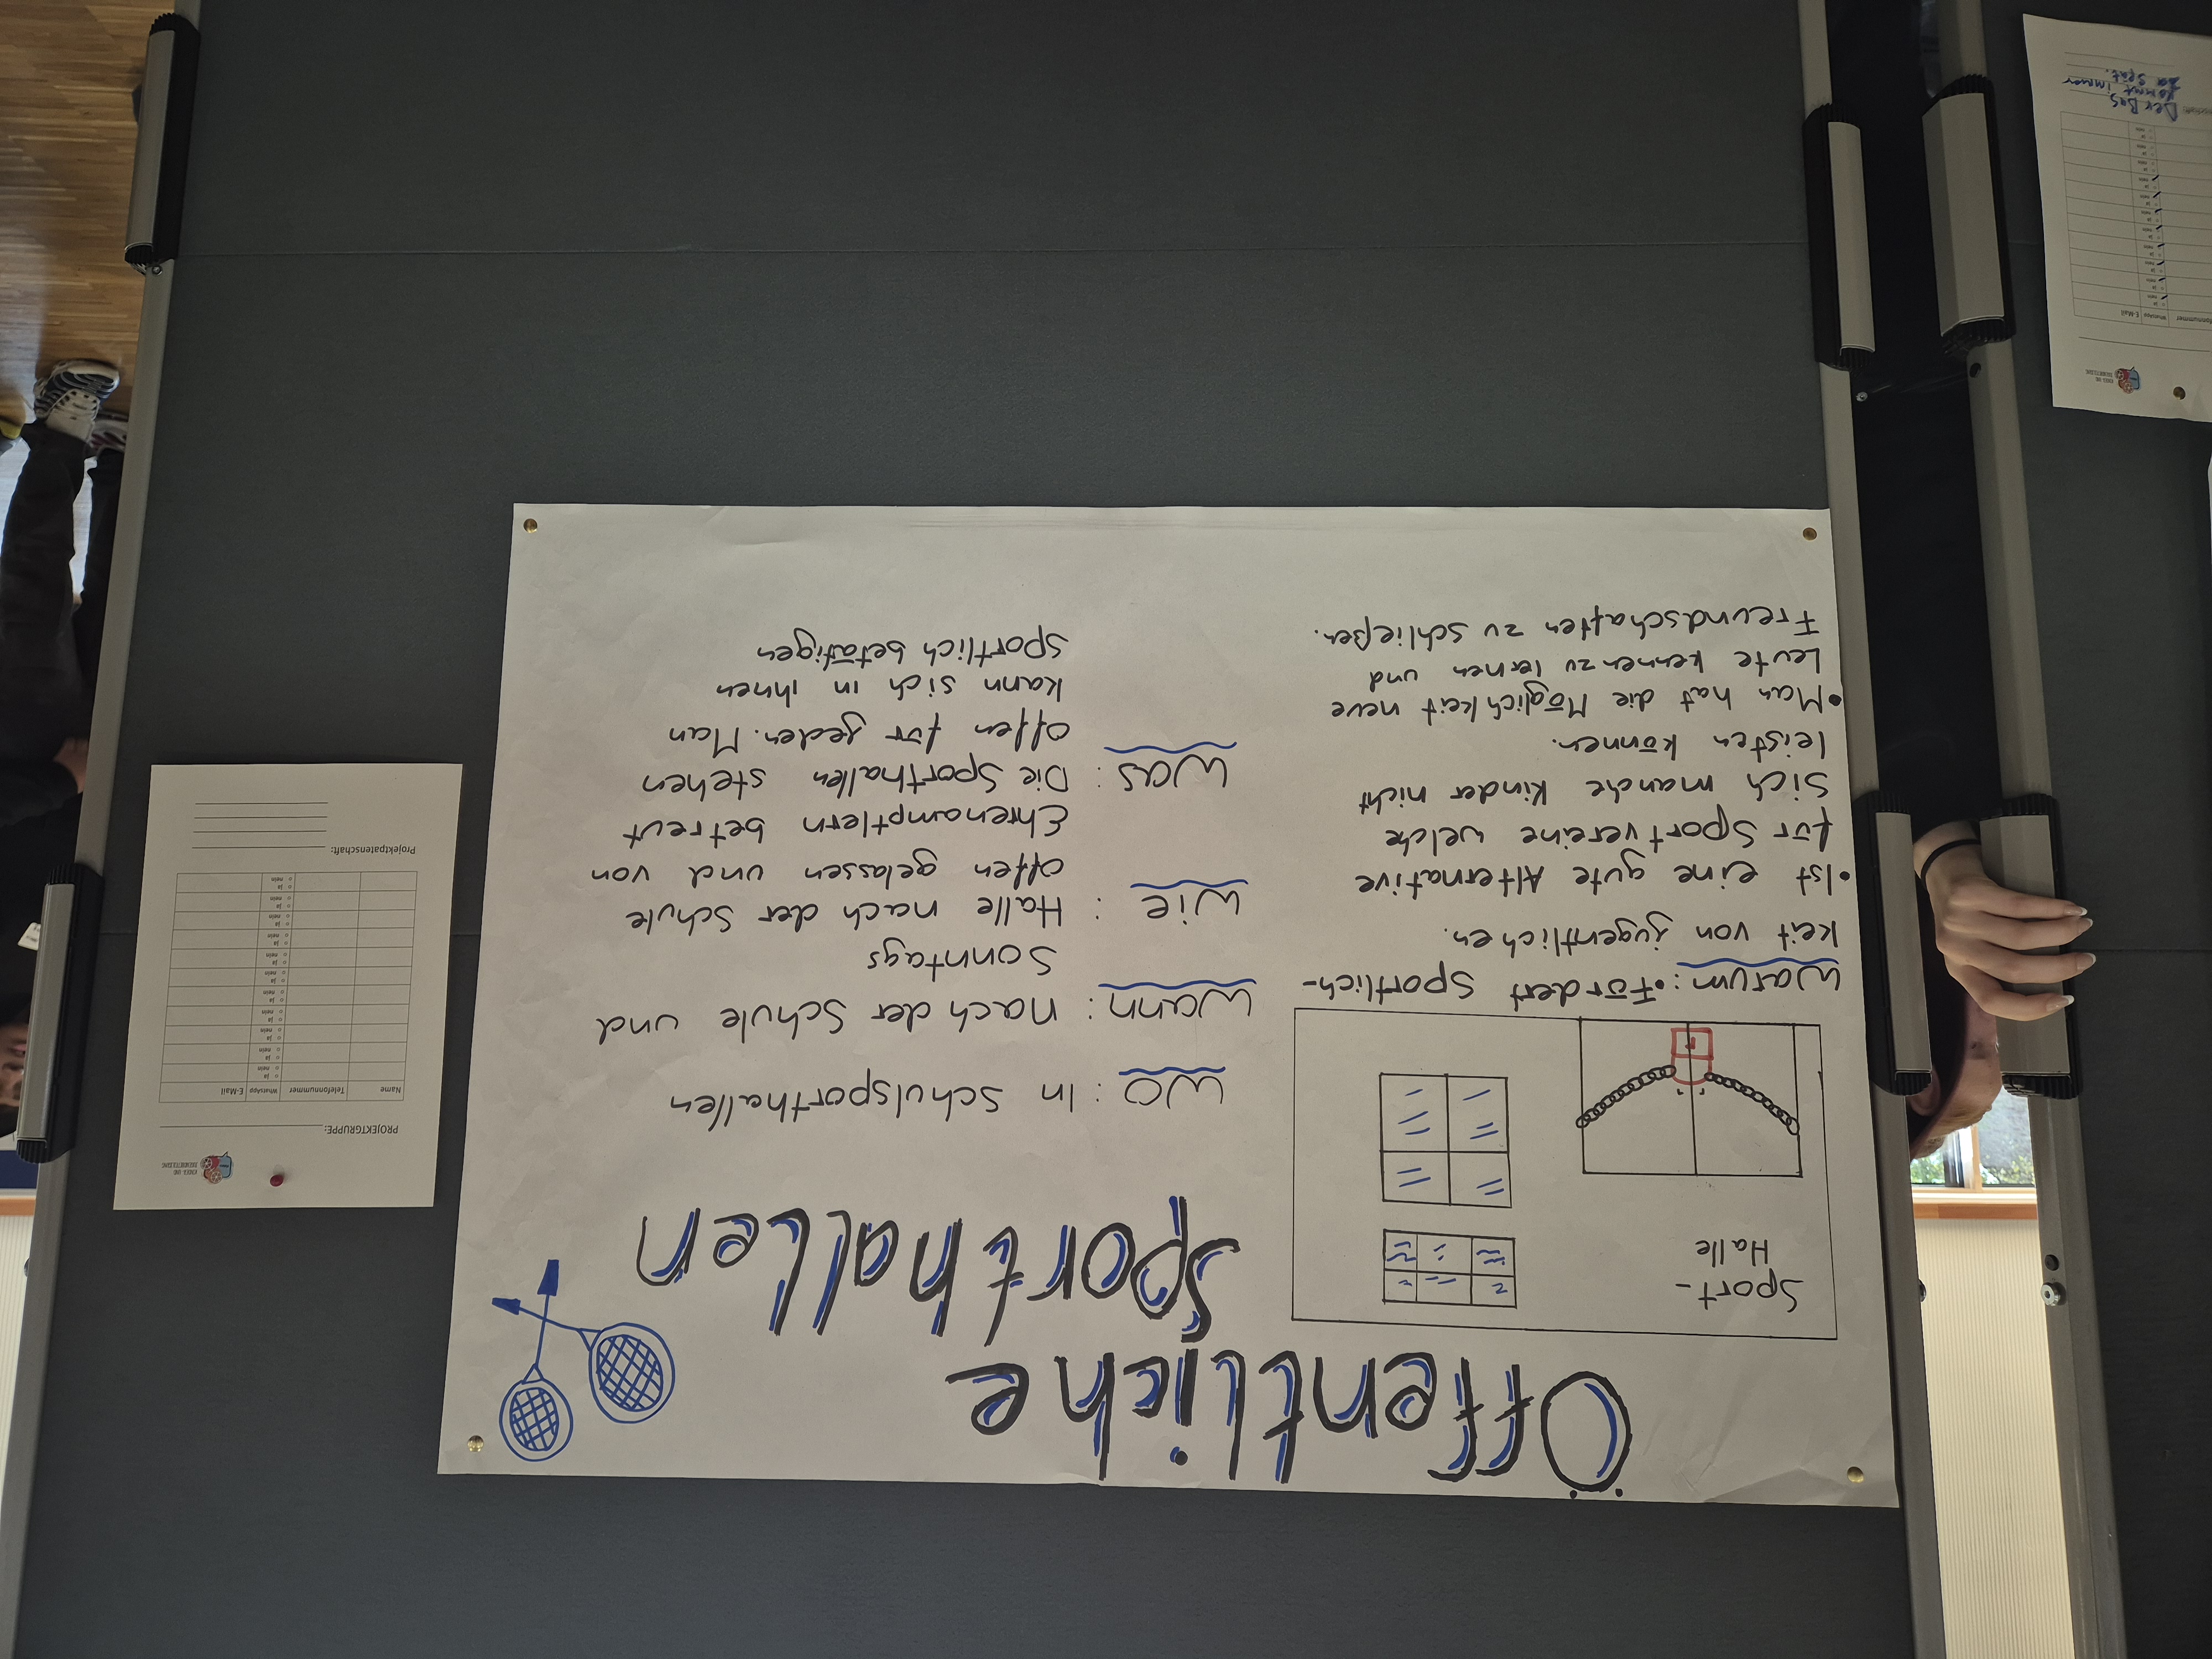 Öffentliche
Sporthallen
Sport-
Halle
Warum: • Fördert Sportlich-
keit von jugentlichen.
• Ist eine gute Alternative
für Sportvereine welche
sich manche Kinder nicht
leisten können.
• Man hat die Möglichkeit neue
Leute kennenzu lernen und
Freundschaften zu schließen.
WO: In Schulsporthallen
Wann: nach der Schule und
Sonntags
Wie: Halle nach der Schule
offen gelassen und von
Ehrenamptlern betreut
Was: Die Sporthallen stehen
offen für jeden. Man
kann sich in ihnen
sportlich betätigen
PROJEKTGRUPPE:
Name Telefonnummer WhatsApp E-Mail
o ja
o nein
o ja
o nein
o ja
o nein
o ja
o nein
o ja
o nein
o ja
o nein
o ja
o nein
o ja
o nein
o ja
o nein
o ja
o nein
o ja
o nein
Projektpatenschaft:
fonnummer WhatsApp E-Mail
Der Bus
kommt immer
zu spät.